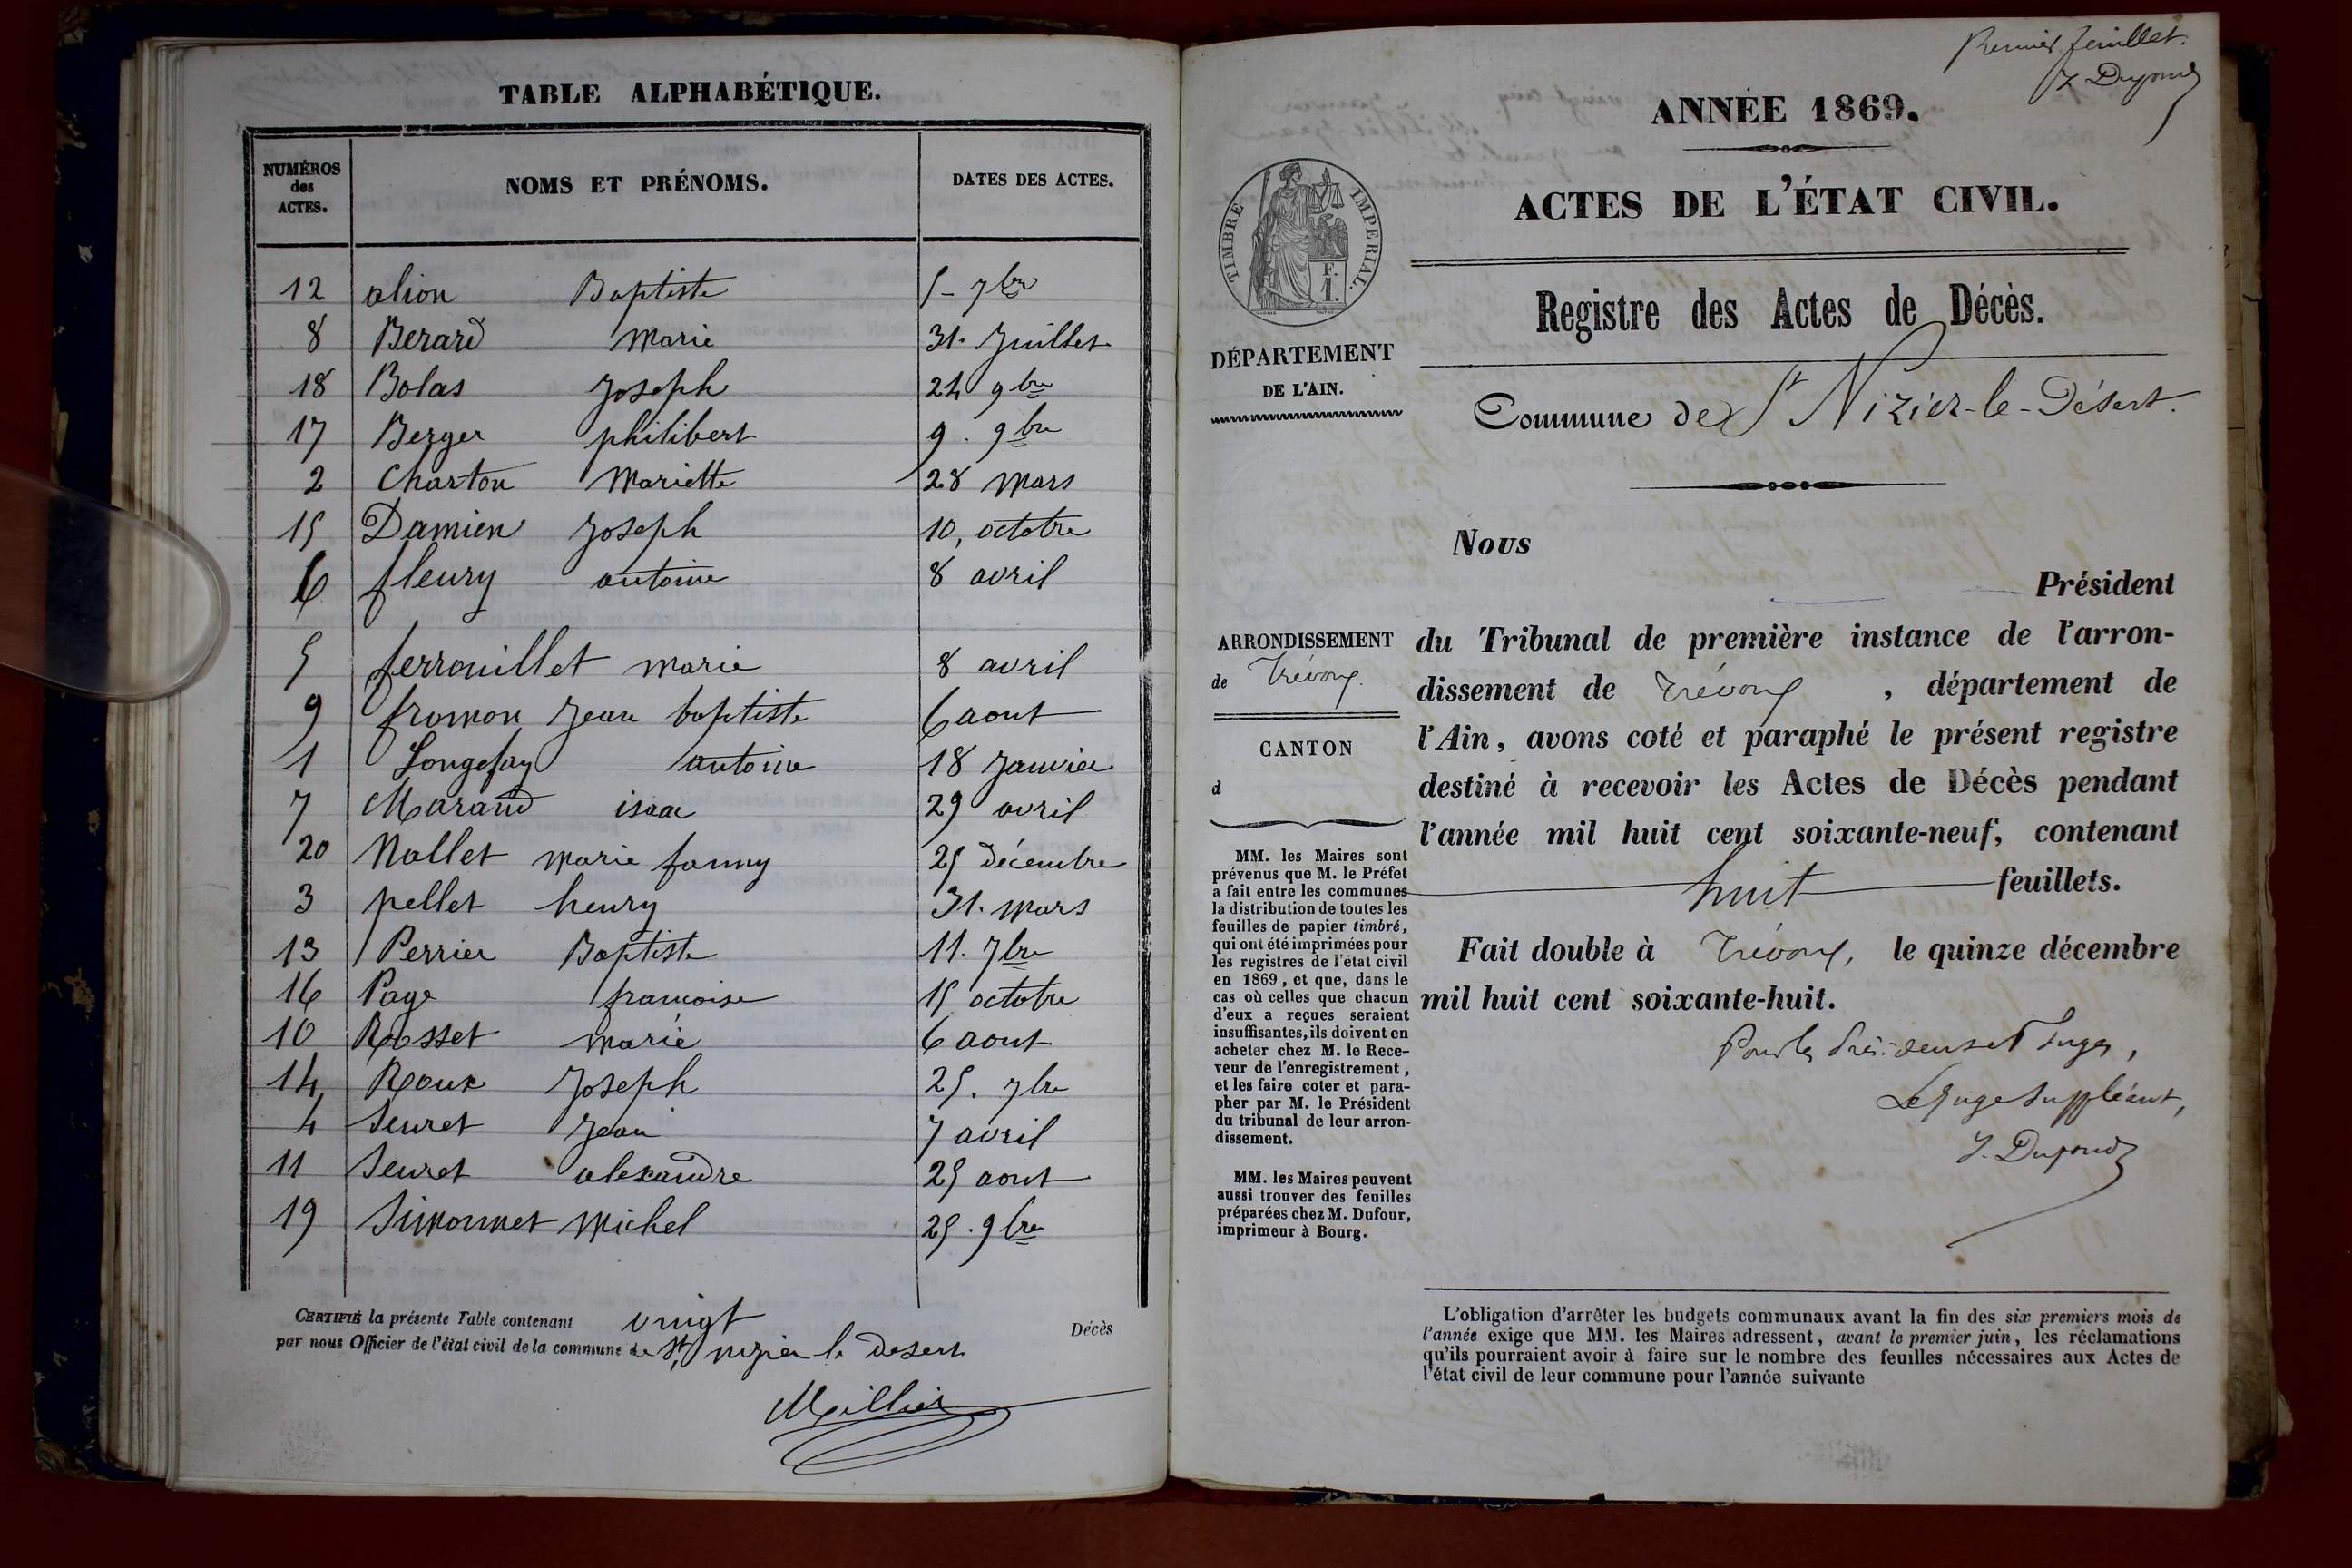 TABLE ALPHABÉTIQUE.
NUMÉROS des ACTES. NOMS ET PRÉNOMS. DATES DES ACTES.
12 alion Baptiste 5-7bre
8 Berard Marie 31. Juillet
18 Bolas Joseph 24 9bre
17 Berger philibert 9. 9bre
2 Charton Mariette 28 Mars
15 Damien Joseph 10, octobre
6 fleury antoine 8 avril
5 ferrouillet marie 8 avril
9 fromon Jean baptiste 6 aout
1 Longefay antoine 18 Janvier
7 Marand isaac 29 avril
20 Nallet marie fanny 25 décembre
3 pellet henry 31. mars
13 Perrier Baptiste 11. 7bre
16 Page francoise 15 octobre
10 Rosset marie 6 aout
14 Roux Joseph 25. 7bre
4 Seuret Jean 7 avril
11 Seuret alexandre 25 aout
19 Simonnet Michel 25. 9bre
CERTIFIÉ la présente Table contenant vingt Décès
par nous Officier de l'état civil de la commune de St nizier le desert
Millier
Premier feuillet.
J Dupond
ANNÉE 1869.
ACTES DE L'ÉTAT CIVIL.
TIMBRE IMPERIAL.
1 F.
Registre des Actes de Décès.
DÉPARTEMENT
DE L'AIN.
Commune de St Nizier-le-Désert.
Nous
Président
ARRONDISSEMENT
de Trévoux.
CANTON
d
du Tribunal de première instance de l'arron-
dissement de Trévoux, département de
l'Ain, avons coté et paraphé le présent registre
destiné à recevoir les Actes de Décès pendant
l'année mil huit cent soixante-neuf, contenant
huit feuillets.
Fait double à Trévoux, le quinze décembre
mil huit cent soixante-huit.
Pour le Président
Le Juge Suppléant,
J. Dupond
MM. les Maires sont
prévenus que M. le Préfet
a fait entre les communes
la distribution de toutes les
feuilles de papier timbré,
qui ont été imprimées pour
les registres de l'état civil
en 1869, et que, dans le
cas où celles que chacun
d'eux a reçues seraient
insuffisantes, ils doivent en
acheter chez M. le Rece-
veur de l'enregistrement,
et les faire coter et para-
pher par M. le Président
du tribunal de leur arron-
dissement.
MM. les Maires peuvent
aussi trouver des feuilles
préparées chez M. Dufour,
imprimeur à Bourg.
L'obligation d'arrêter les budgets communaux avant la fin des six premiers mois de
l'année exige que MM. les Maires adressent, avant le premier juin, les réclamations
qu'ils pourraient avoir à faire sur le nombre des feuilles nécessaires aux Actes de
l'état civil de leur commune pour l'année suivante